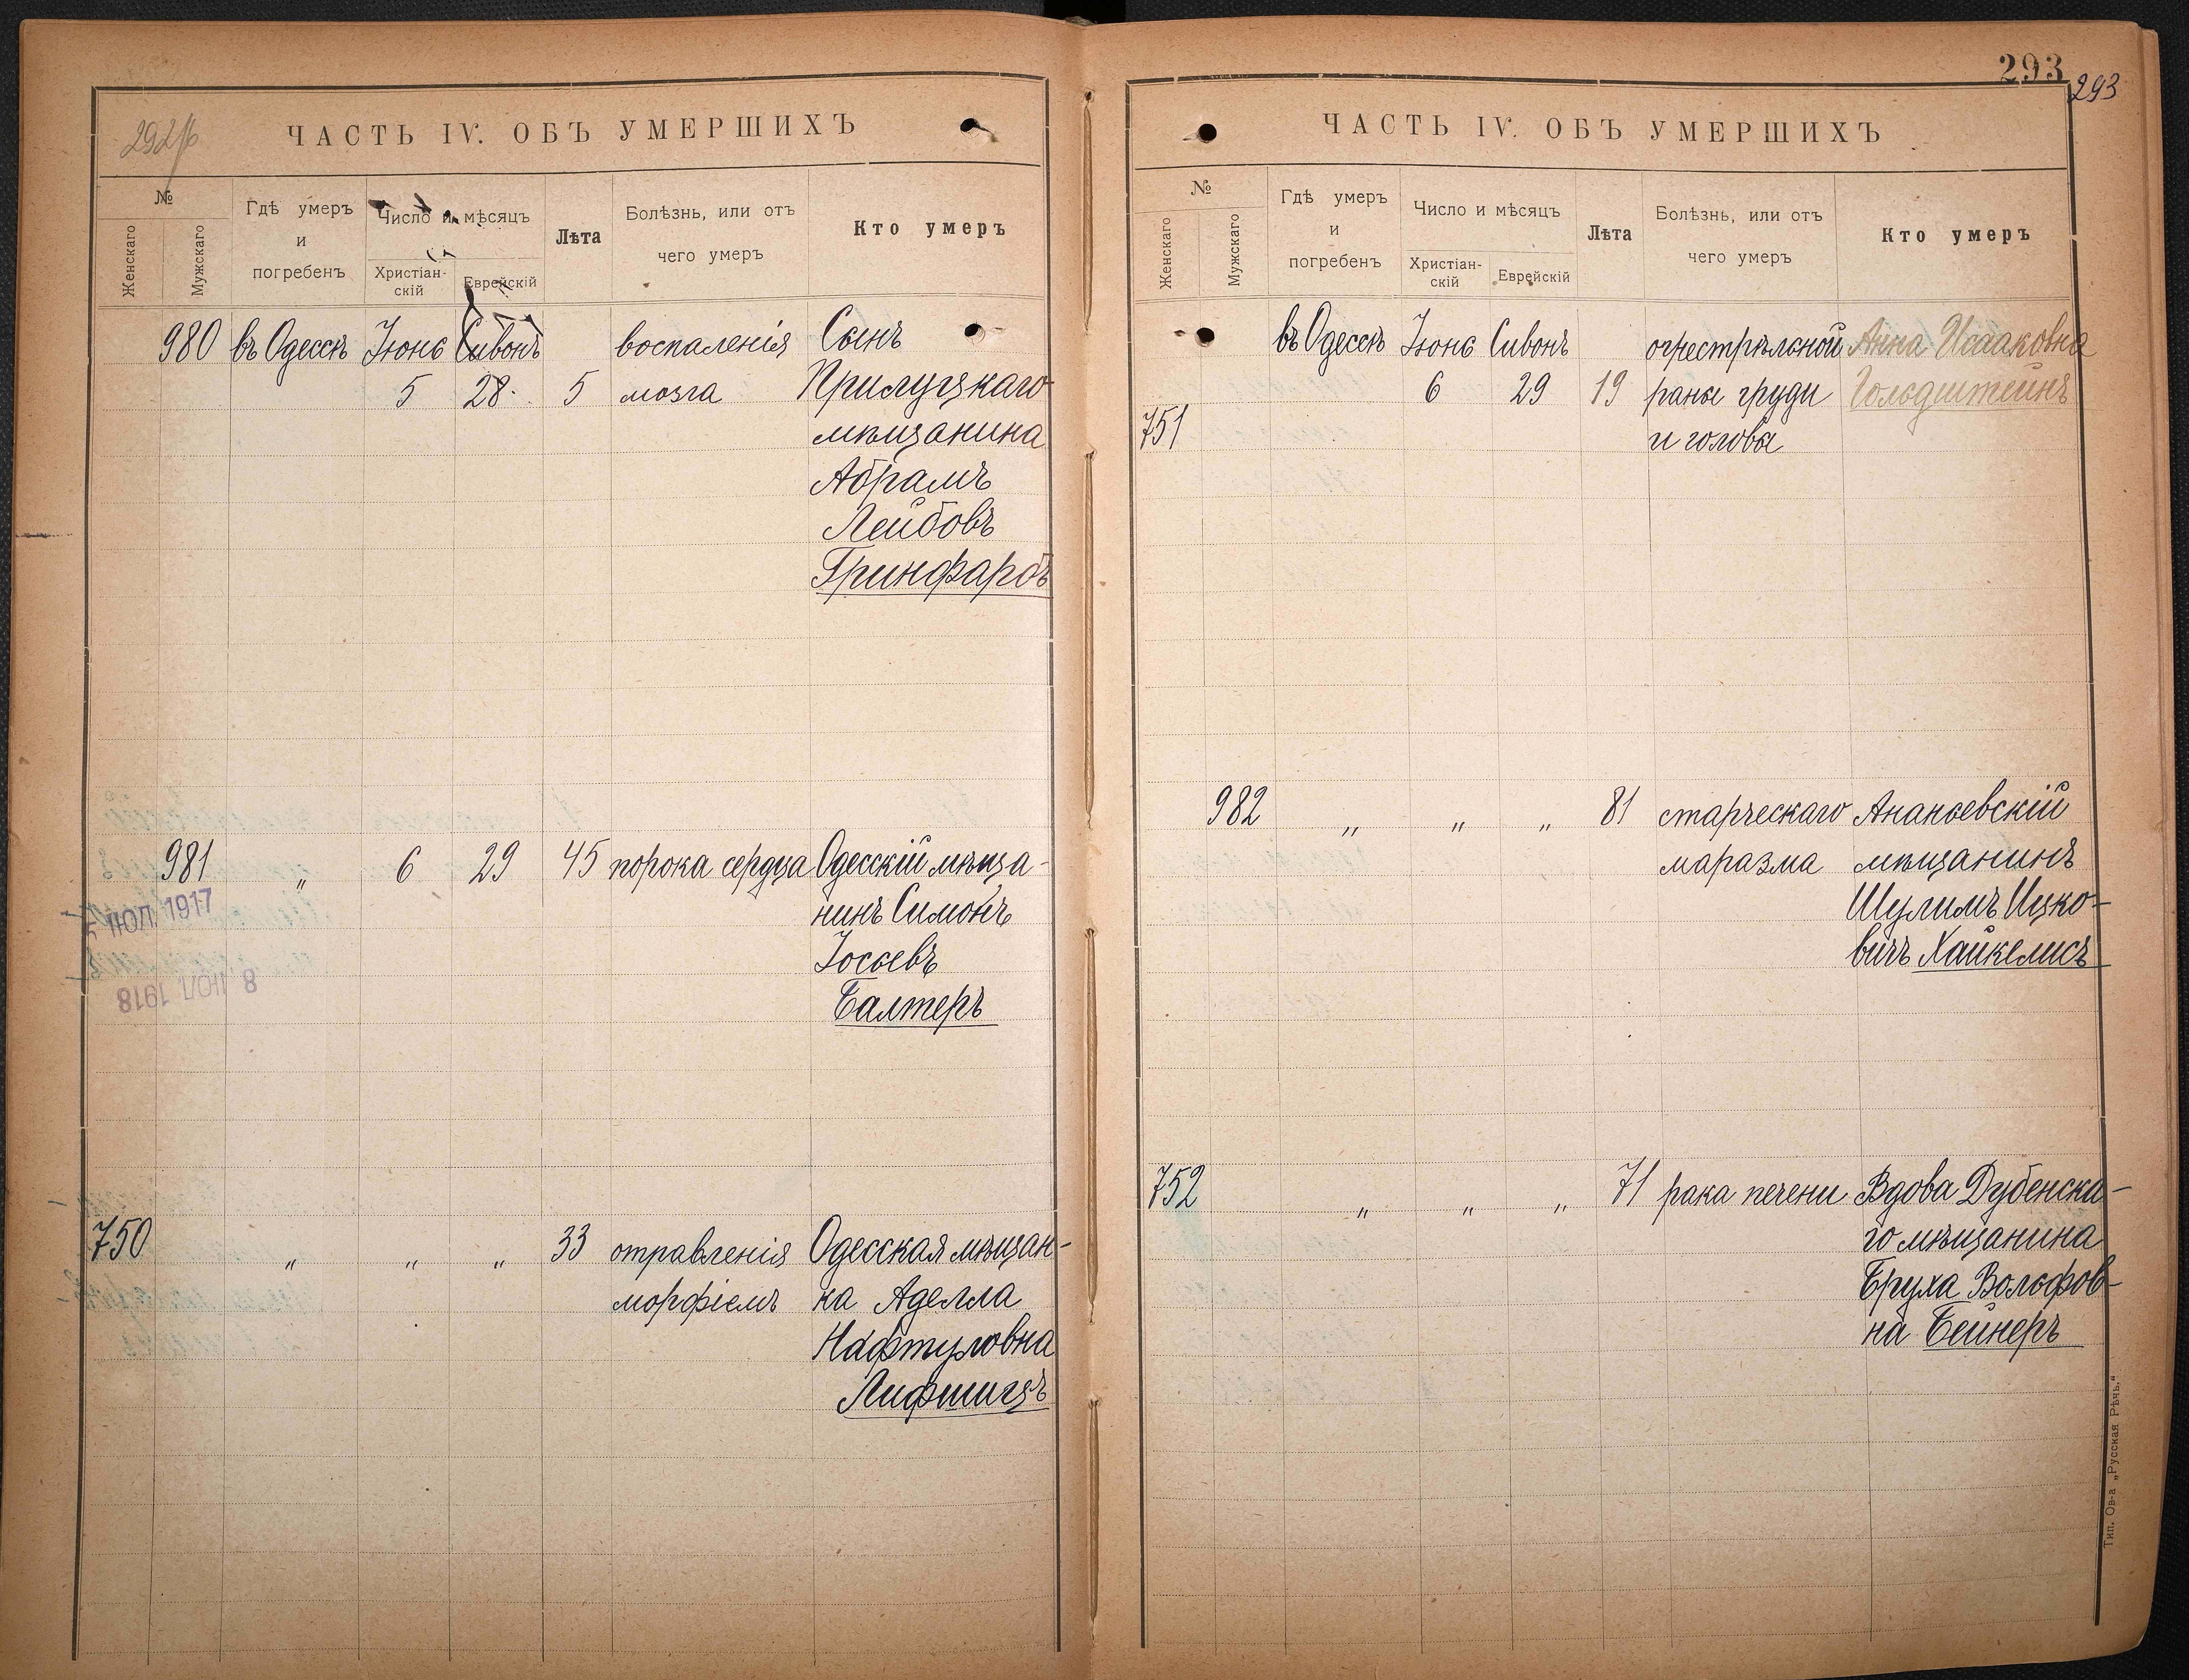 292 об
ЧАСТЬ IV. ОБЪ УМЕРШИХЪ
№
Женскаго
Мужскаго
Гдѣ умеръ
и
погребенъ
Число и мѣсяцъ
Христіан-
скій
Еврейскій
Лѣта
Болѣзнь, или отъ
чего умеръ
Кто умеръ
980 въ Одессѣ Іюнь Сивонъ воспаленія Сынъ
5 28 5 мозга Прилуцкаго
мѣщанина
Абрамъ
Лейбовъ
Гринфарбъ
981 " 6 29 45 порока сердца Одесскій мѣща-
нинъ Симонъ
Іосьевъ
Балтеръ
ІЮЛ. 1917
8. ІЮЛ 1918
750 " " " 33 отравленія Одесская мѣщан-
морфіемъ ка Аделла
Нафтуловна
Лифшицъ
293
293
ЧАСТЬ IV. ОБЪ УМЕРШИХЪ
№
Женскаго
Мужскаго
Гдѣ умеръ
и
погребенъ
Число и мѣсяцъ
Христіан-
скій
Еврейскій
Лѣта
Болѣзнь, или отъ
чего умеръ
Кто умеръ
въ Одессѣ Іюнь Сивонъ огнестрѣльной Анна Исааковна
6 29 19 раны груди Гольдштейнъ
751 и головы
982 " " " 81 старческаго Ананьевскій
маразма мѣщанинъ
Шулимъ Ицко-
вичъ Хайкелисъ
752 " " " 71 рака печени Вдова Дубенска-
го мѣщанина
Бруха Вольфов-
на Бейнеръ
Тип. Ов-а „Русская Рѣчь."